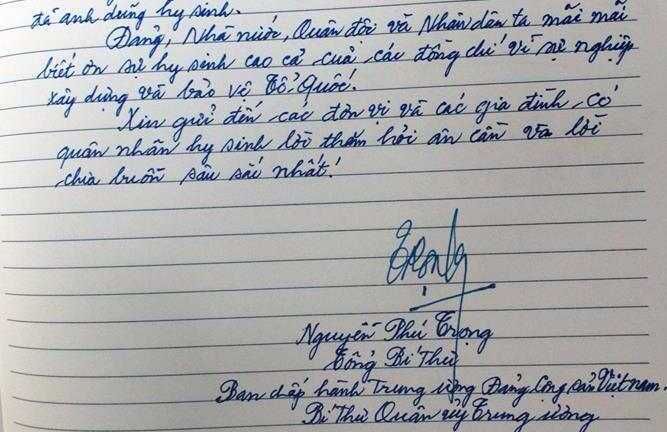 đã anh dũng hy sinh.
Đảng, Nhà nước, Quân đội và Nhân dân ta mãi mãi
biết ơn sự hy sinh cao cả của các đồng chí vì sự nghiệp
xây dựng và bảo vệ Tổ Quốc.
Xin gửi đến các đơn vị và các gia đình có
quân nhân hy sinh lời thăm hỏi ân cần và lời
chia buồn sâu sắc nhất!
Trọng
Nguyễn Phú Trọng
Tổng Bí Thư
Ban chấp hành Trung ương Đảng Cộng sản Việt nam.
Bí Thư Quân ủy Trung ương